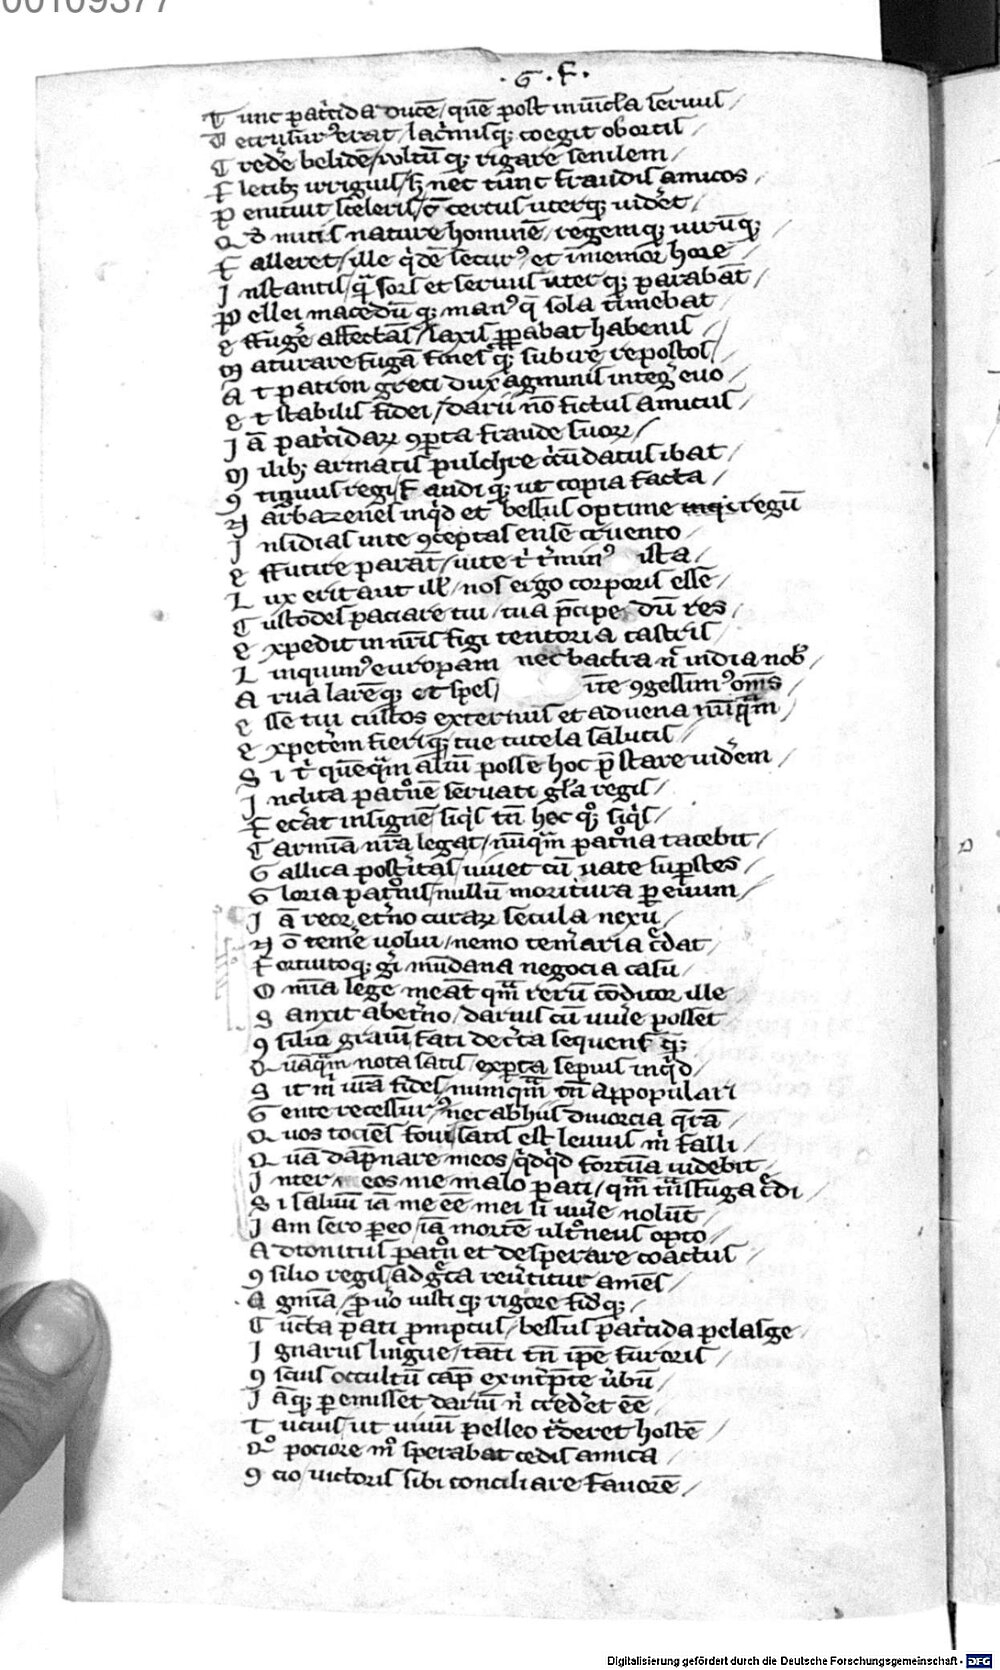 00109377
. G . F .
T unc patͥcida ducē / quē post in uīcl̄a seruus /
D etrusur⁹ erat / lacͥmisq; coegit obortis /
C redē belidē / uultū q; rigare senilem /
F letibꝫ irriguis / sꝫ nec tūnc fraudis amicos /
P enituit sceleris / ⁊ certus uterq; uidet /
Q d mitis nature hominē / regemq; uirūq; /
F alleret / ille qͥdē secur⁹ et īmemor hore /
I nstantis / qᷓ sors et seruus uterq; parabāt /
P ellei macedū q; man⁹ qᷓ sola timebat /
E ffugē affectās / laxis ꝓꝑabat habenis /
M aturare fugā fines q; subire repostos /
A t patron greci dux agminis integͥ euo /
E t stabilis fidei / darii nō fictus amicus /
I ā patͥcidaꝝ ꝯꝑta fraude suoꝝ /
M ilibꝫ armatis pulchre cͥcūdatus ibat /
ꝯ tiguus regi / F andi q; ut copia facta /
N arbazenes inqͥd et bessus optime regū
I nsidias uite ꝯceptas ense cruento /
E ffutire parāt / uite tͥ tͥmin⁹ ista /
L ux erit aut ill̓ / nos ergo corporis esse /
C ustodes paciare tui / tua pͥcipe dū res /
E xpedit in nr̄is figi tentoria castris /
L inquim⁹ europam nec bactra nͥ india nob̓ /
A rua laremq; et spes / ī te ꝯgessim⁹ oms̄
E sse tui custos externus et aduena nūqᷓm /
E xpetem fieriq; tue tutela salutis /
S i tͥ quēqᷓm aliū posse hoc p̄stare uidem /
I nclita patͦnē seruati gl̄a regis /
F ecāt insignē / siqͥs tn̄ hec qͦꝫ siqͥs /
C armīa nr̄a legat / nūqᷓm patͦna tacebit /
G allica postͥtas / uiuet cū uate suꝑstes /
G loria patͦnis / nullū moritura ꝑ euum /
I ā reor etͥno curaꝝ secula nexu /
N ō temē uolui / nemo temͥaria cͤdat /
F ortuitoq; gͥ mūdana negocia casu /
O mīa lege meāt qᷓm rerū cōditor ille
S anxit ab etͥno / darius cū uiuͤe posset /
ꝯ silio grauiū / fati decͤta sequens qᷓ; /
Q uāqᷓm nota satis / exꝑta sepius inqͥd /
S it mͥ uīa fides / numqᷓm tn̄ a ꝓpulari
G ente recessur⁹ / nec ab hiis diuorcia qͥrā /
Q uos tociēs foui / satis est leuius mͥ falli /
Q uā dāpnare meos / qͥdqͥd fortūa uidebit /
I nter meos me malo pati / qᷓm tͣnsfuga cͤdi /
S i saluū iā me eē mei si uiuͤe nolūt /
I am sero ꝑeo / iā mortē ultͦneus opto /
A dtonitus patͦn et desperare coactus /
ꝯ silio regis / ad gͤca reuͥtitur amēs /
A gmīa / ꝓ uͦo iusti q; rigore fideiq; /
C ūcta pati ꝓmptus / bessus patͥcida pelasge /
I gnarus lingue / tāti tn̄ ipē furoris /
ꝯ scius occultū capͥ ex inͥtpͥte ūbū /
I āq; ꝑemisset dariū nͥ credet eē /
T ucius / ut uiuū pelleo tͣderet hostē /
Qͦ pociorē mͦ sperabat cedis amica /
ꝯ cio / uictoris sibi conciliare fauorē /
Digitalisierung gefördert durch die Deutsche Forschungsgemeinschaft - DFG